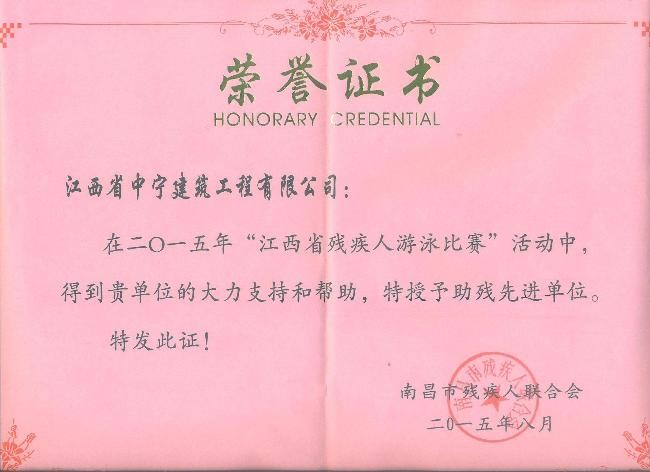 荣誉证书
HONORARY CREDENTIAL
江西省中宁建筑工程有限公司：
在二〇一五年“江西省残疾人游泳比赛”活动中，
得到贵单位的大力支持和帮助，特授予助残先进单位。
特发此证！
南昌市残疾人联合会
二〇一五年八月